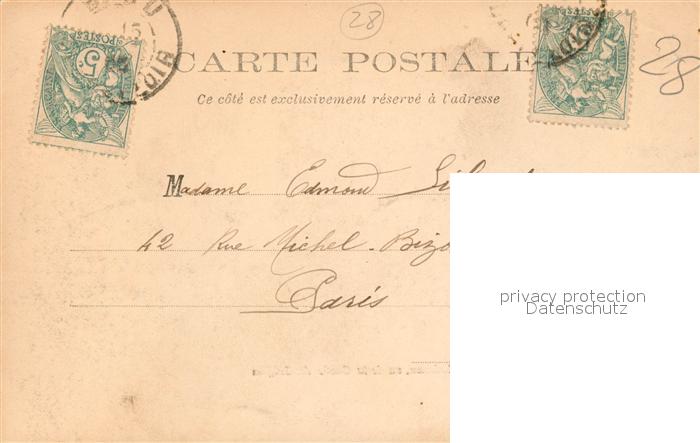 28
CARTE POSTALE
28
Ce côté est exclusivement réservé à l'adresse
POSTES
5c
Madame Edmond
42 Rue Michel-Bizo
Paris
privacy protection
Datenschutz